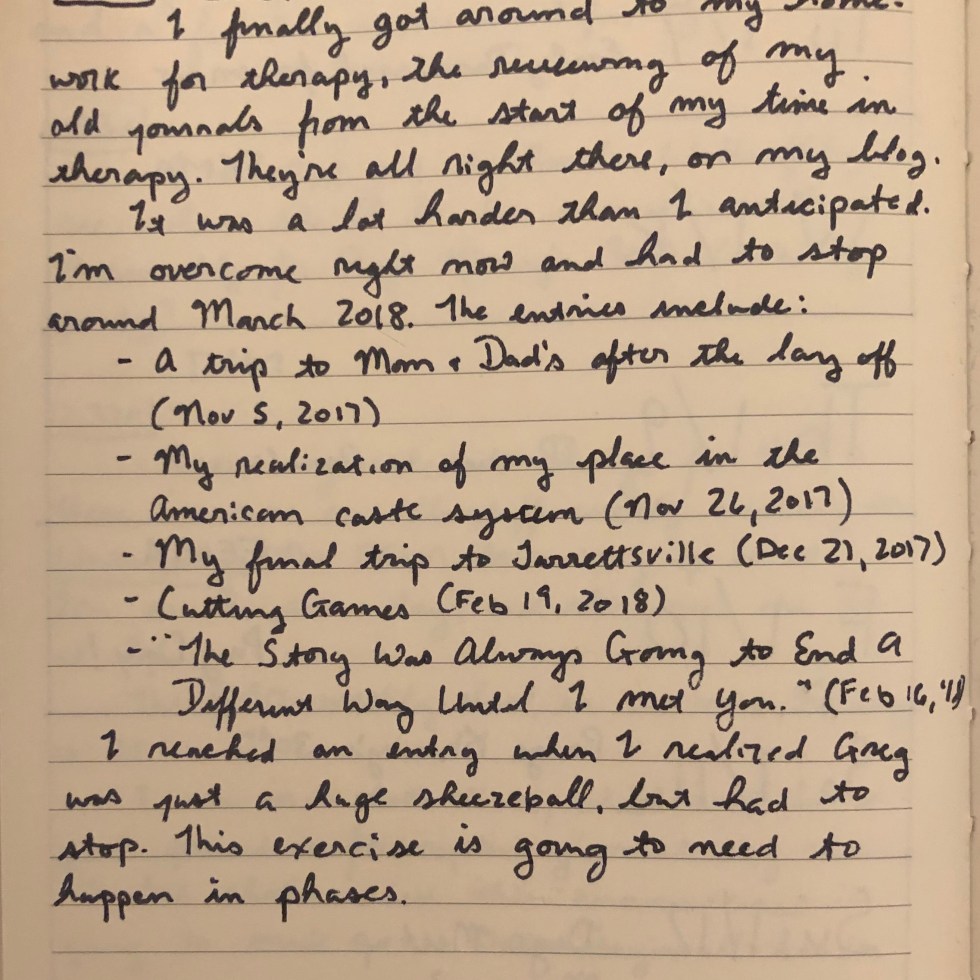 I finally got around to my home-
work for therapy, the reviewing of my
old journals from the start of my time in
therapy. They're all right there, on my blog.
It was a lot harder than I anticipated.
I'm overcome right now and had to stop
around March 2018. The entries include:
- A trip to Mom & Dad's after the lay off
(Nov 5, 2017)
- My realization of my place in the
American caste system (Nov 26, 2017)
- My final trip to Jarrettsville (Dec 21, 2017)
- Cutting Games (Feb 19, 2018)
- "The Story Was Always Going to End A
Different Way Until I met you." (Feb 16, '18)
I reached an entry when I realized Greg
was just a huge sheezeball, but had to
stop. This exercise is going to need to
happen in phases.